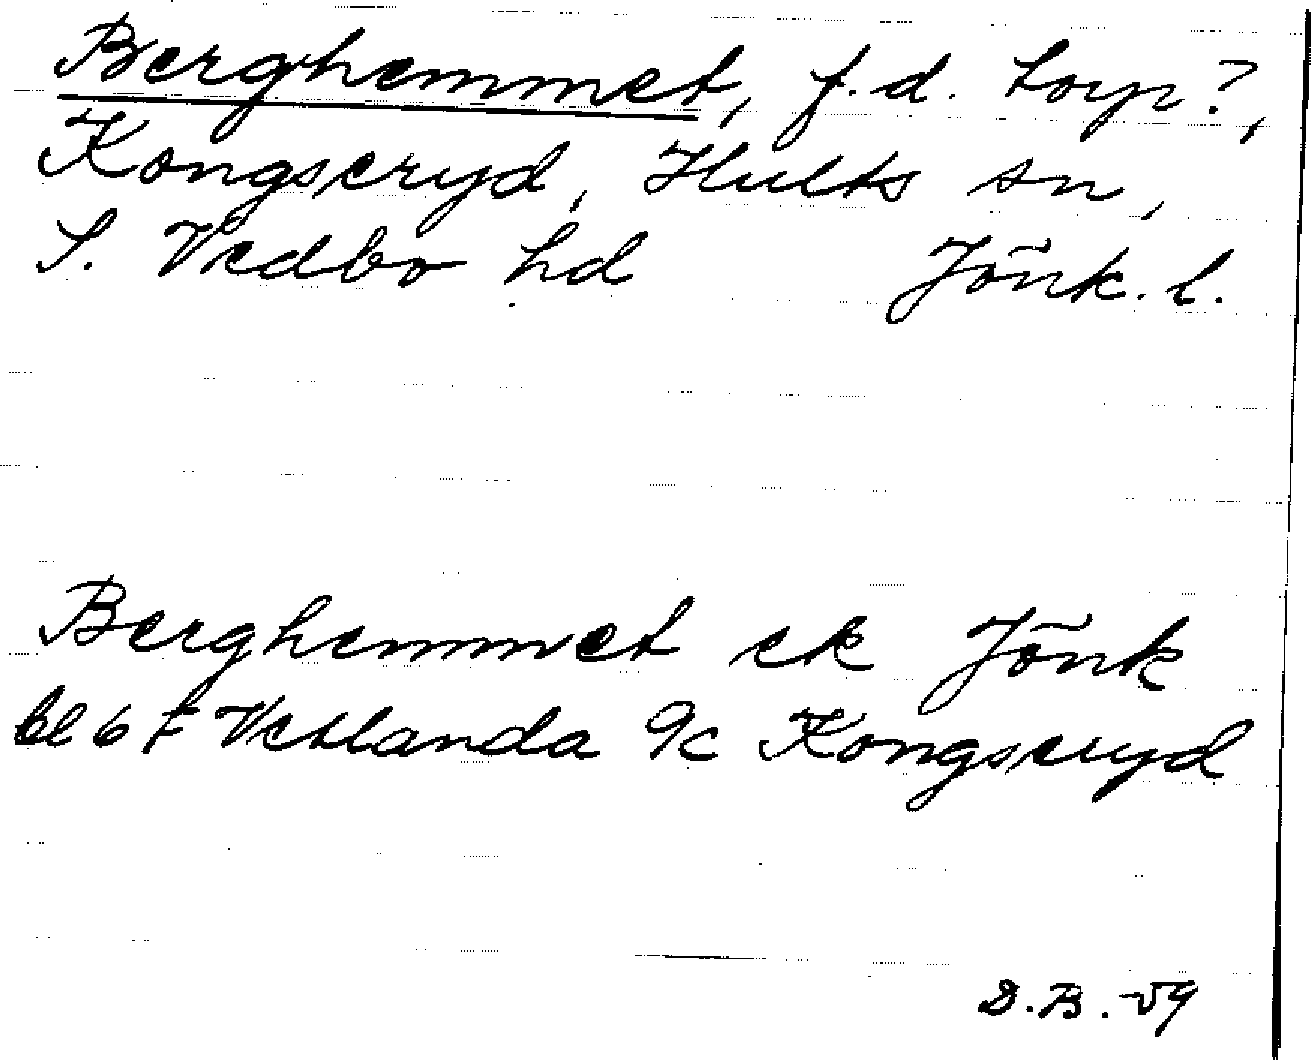 Berghemmet, f.d. torp?,
Kongseryd, Hults sn,
S. Vedbo hd Jönk. l.
Berghemmet ek Jönk
bl 6 F Vetlanda 9c Kongseryd
D.B. -59